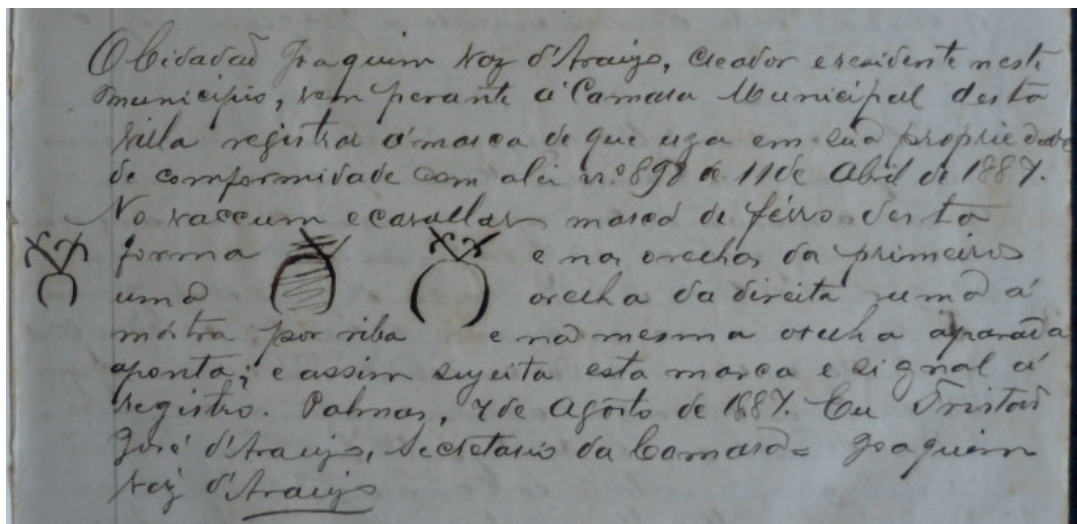 O Cidadaõ Joaquim Vaz d'Araujo, creador e residente neste
Municipio, vem perante a Camara Municipal desta
Villa registrar a marca de que uza em sua propriedade
de comformidade com a lei nº 898 de 11 de Abril de 1887.
No vaccum e cavallar marca de férro desta
forma e nas orelhas da primeira
uma orelha da direita uma a
móstra por riba e na mesma orelha aparada
aponta; e assim sujeita esta marca e signal á
registro. Palmas, 7 de Agosto de 1887. Eu Tristaõ
José d'Araujo, Secretario da Camara = Joaquim
Vaz d'Araujo